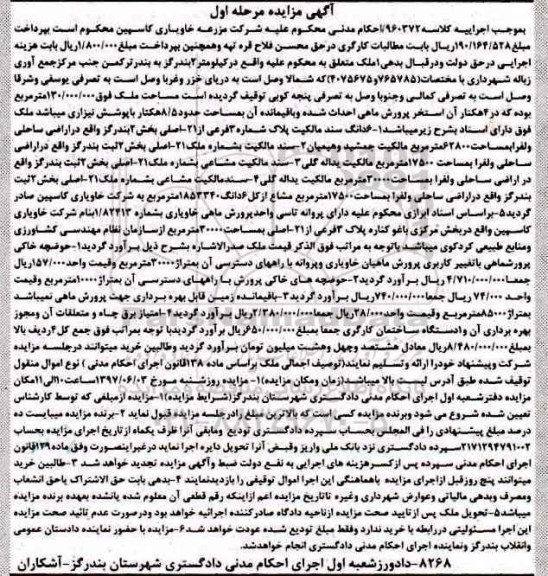 آگهی مزایده مرحله اول
بموجب اجراییه کلاسه۹۶۰۳۷۲/احکام مدنی محکوم علیه شرکت مزرعه خاویاری کاسپین محکوم است بپرداخت
مبلغ۱۹۰/۱۶۴/۵۲۸ریال بابت مطالبات کارگری درحق محسن فلاح قره تپه وهمچنین بپرداخت مبلغ۱/۸۰۰/۰۰۰ریال بابت هزینه
اجرایی درحق دولت ودرقبال بدهی۱ملک متعلق به محکوم علیه واقع درکیلومتر۲بندرگز به بندرترکمن جنب مرکزجمع آوری
زباله شهرداری با مختصات(۷۶۵۷۸۵و۴۰۷۵۶۷۵)که شمالا وصل است به دریای خزر وغربا وصل است به تصرفی یوسفی وشرقا
وصل است به تصرفی کمالی وجنوبا وصل به تصرفی پنجه کوبی توقیف گردیده است مساحت ملک فوق۱۳۰/۰۰۰مترمربع
بوده که در۴هکتار آن استخر پرورش ماهی احداث شده وباقیمانده آن بمساحت حدود۸/۵هکتار باپوشش نیزاری میباشد ملک
فوق دارای اسناد بشرح زیرمیباشد۱-۶دانگ سند مالکیت پلاک شماره۳فرعی از۲۱-اصلی بخش۲بندرگز واقع دراراضی ساحلی
ولفرابمساحت۶۲۸۰۰مترمربع مالکیت همشید وهیمیان۲-سند مالکیت بشماره ملک۲۱-اصلی بخش۲ثبت بندرگز واقع دراراضی
ساحلی ولفرا بمساحت ۱۷۵۰۰مترمربع مالکیت یداله گلی۳-سند مالکیت مشاعی بشماره ملک۲۱-اصلی بخش۲ثبت بندرگز واقع
در اراضی ساحلی ولفرا بمساحت۲۰۰۰۰مترمربع مالکیت یداله گلی۴-سندمالکیت مشاعی بشماره ملک۲۱-اصلی بخش۲ثبت
بندرگز واقع دراراضی ساحلی ولفرا بمساحت۱۷۵۰۰مترمربع مشاع ازکل۶دانگ۱۸۵۳۳۴۰مترمربع به شرکت خاویاری کاسپین صادر
گردید۵-براساس اسناد ابرازی محکوم علیه دارای پروانه تاسی واحدپرورش ماهی خاویاری بشماره ۱/۸۲۴۱۳بنام شرکت خاویاری
کاسپین واقع دربخش مرکزی باغو کناره پلاک ۳فرعی از۲۱-اصلی بمساحت۳۰۰۰۰مترمربع ازسازمان نظام مهندسی کشاورزی
ومنابع طبیعی کردکوی میباشد باتوجه به مراتب فوق الذکر قیمت ملک صدرالاشاره بشرح ذیل برآورد گردید۱-حوضچه خاکی
پرورشماهی باتغییر کاربری پرورش ماهیان خاویاری وپروانه با راههای دسترسی آن بمتراژ۳۰۰۰۰مترمربع وقیمت واحد۱۵۷/۰۰۰ریال
جمعا۴/۷۱۰/۰۰۰/۰۰۰ ریال برآورد گردید۲-حوضچه های خاکی پرورش با راههای دسترسی آن بمتراژ۱۰۰۰۰مترمربع وقیمت
واحد ۷۴/۰۰۰ ریال جمعا۷۴۰/۰۰۰/۰۰۰ریال برآورد گردید۳-باقیمانده زمین قابل بهره برداری جهت پرورش ماهی نمیباشد
بمتراژ۸۵۰۰۰مترمربع وقیمت واحد۲۸/۰۰۰ریال جمعا۲/۳۸۰/۰۰۰/۰۰۰ریال برآورد گردید۴-امتیاز برق چاه و متعلقات آن ومجوز
بهره برداری آن وادستگاه ساختمان کارگری جمعا بمبلغ۶۵۰/۰۰۰/۰۰۰ریال برآورد گردیدبا توجه بمراتب فوق جمع کل۴ردیف بالا
بمبلغ۸/۴۸۰/۰۰۰/۰۰۰ریال معادل هشتصد وچهل وهشت میلیون تومان برآورد گردید وطالبین خرید میتوانند درجلسه مزایده
شرکت وپیشنهاد خودرا ارائه وتسلیم نمایند(توصیف اجمالی ملک براساس ماده ۱۳۸قانون اجرای احکام مدنی ) نوع اموال منقول
توقیف شده طبق آدرس لیست بالا میباشد(زمان ومکان مزایده)۱-مزایده روزشنبه مورخ ۱۳۹۷/۰۶/۰۳ساعت۱۰الی۱۱مکان
مزایده دفترشعبه اول اجرای احکام مدنی دادگستری شهرستان بندرگز(شرایط مزایده)۱-مزایده ازمبلغی که توسط کارشناس
تعیین شده شروع می شود وبرنده مزایده کسی است که بالاترین مبلغ رادرجلسه مزایده قبول نماید ۲-برنده مزایده میبایست ده
درصد مبلغ پیشنهادی را فی المجلس بحساب سپرده دادگستری تودیع ومابقی آنرا ظرف یکماه ازتاریخ اجرای مزایده بحساب
۲۱۷۱۲۹۴۷۹۱۰۰۲سپرده دادگستری نزد بانک ملی واریز وقبض آنرا تحویل دایره اجرا نماید درغیراینصورت وفق ماده ۱۲۹قانون
اجرای احکام مدنی سپرده پس ازکسرهزینه های اجرایی به نفع دولت ضبط وآگهی مزایده تجدید خواهد شد ۳-طالبین خرید
میتوانند پنج روزقبل ازاجرای مزایده باهماهنگی این اجرا اموال توقیفی را بازدیدنمایند ۴-بدهی بابت حق الاشتراک یاحق انشعاب
ومصرف وبدهی مالیاتی وعوارض شهرداری وغیره تاتاریخ مزایده اعم ازاینکه رقم قطعی آن معلوم شده یانشده بعهده برنده مزایده
میباشد۵-تحویل ملک پس ازتایید صحت مزایده ازناحیه دادگاه صادرکننده اجرائیه خواهد بود ودرصورت عدم تائید صحت مزایده
این اجرا مسئولیتی دررابطه با خرید ندارد وفقط مبلغ تودیع شده عودت خواهد شد۶-مزایده با حضور نماینده دادستان عمومی
وانقلاب بندرگز ونماینده اجرای احکام مدنی دادگستری انجام خواهدشد.
۸۲۶۸-دادورزشعبه اول اجرای احکام مدنی دادگستری شهرستان بندرگز-آشکاران